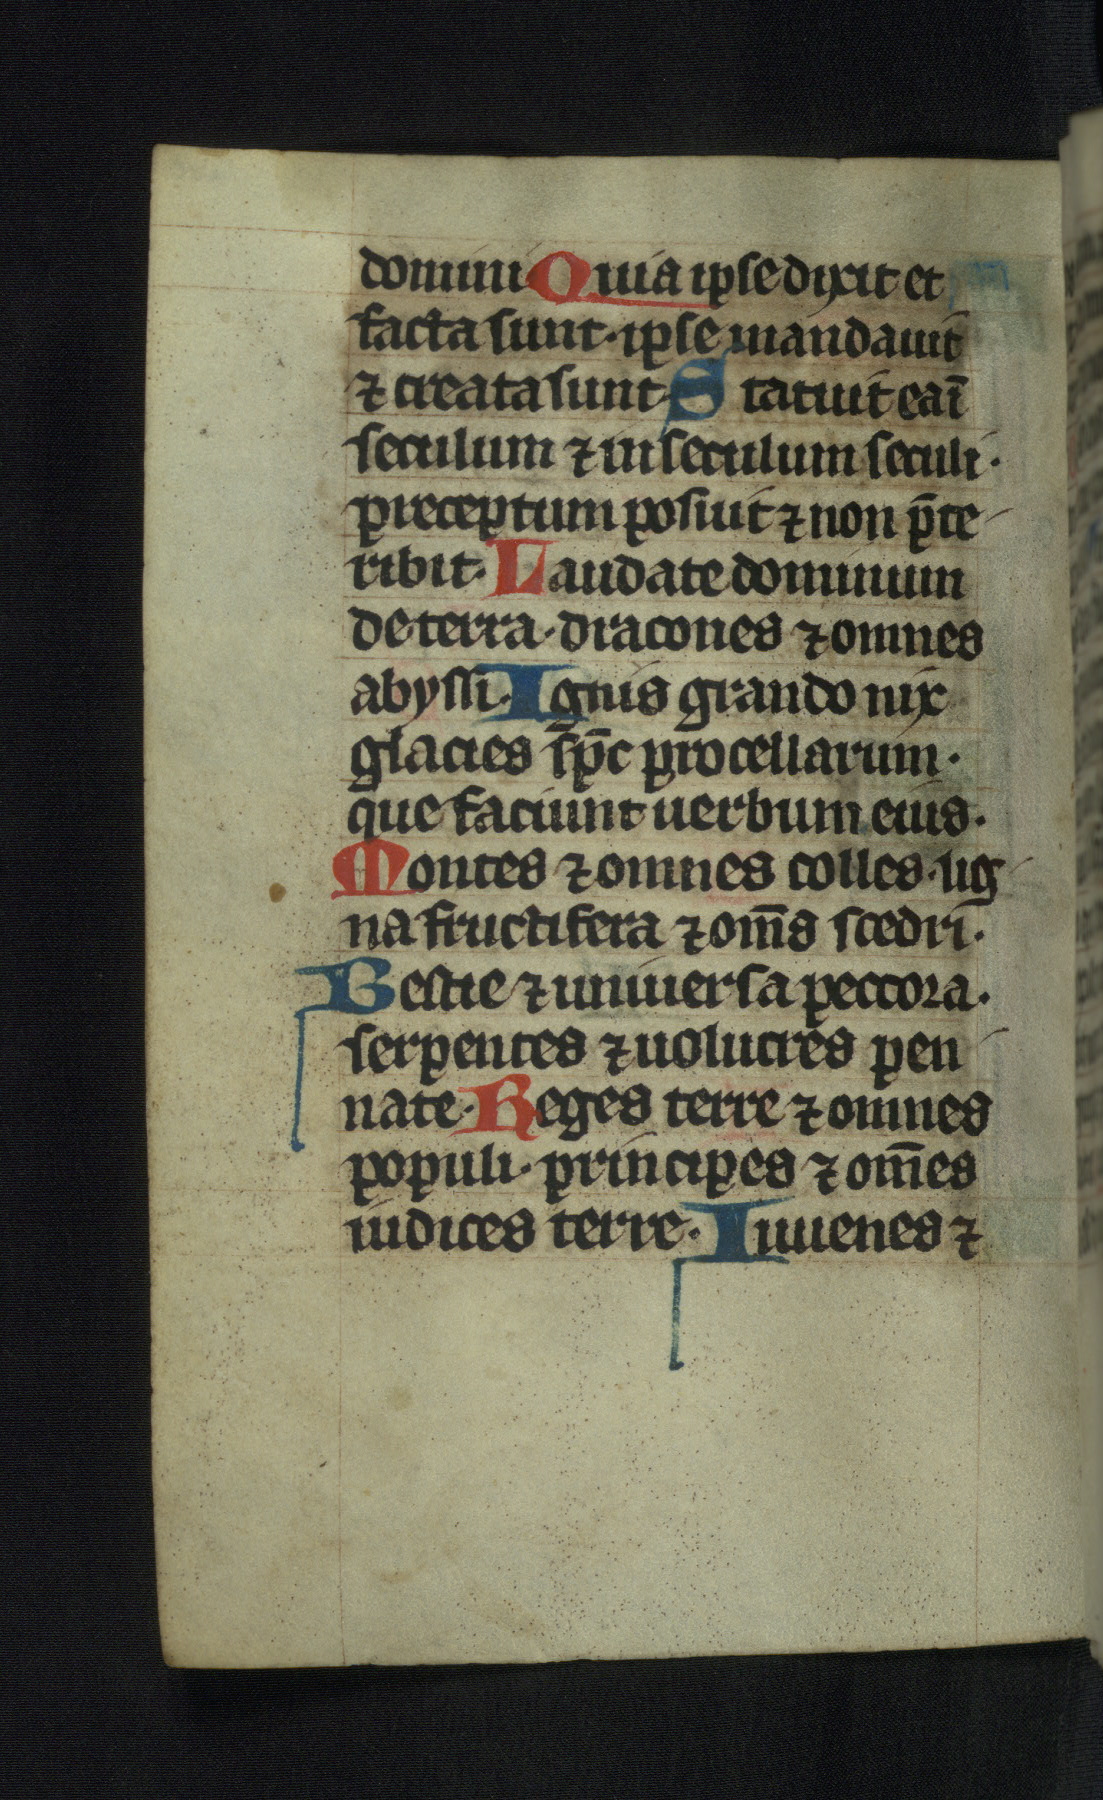 domini Quia ipse dixit et
facta sunt · ipse mandauit
⁊ creata sunt · Statuit ea ī
seculum ⁊ in seculum seculi ·
preceptum posuit ⁊ non p̄te
ribit · Laudate dominum
de terra · dracones ⁊ omnes
abyssi · Ignis grando nix
glacies sp̄c procellarum ·
que faciunt uerbum eius ·
Montes ⁊ omnes colles · lig
na fructifera ⁊ om̄s scedri ·
Bestie ⁊ uniuersa peccora ·
serpentes ⁊ uolucres pen
nate · Reges terre ⁊ omnes
populi · principes ⁊ om̄es
iudices terre · Iuuenes ⁊